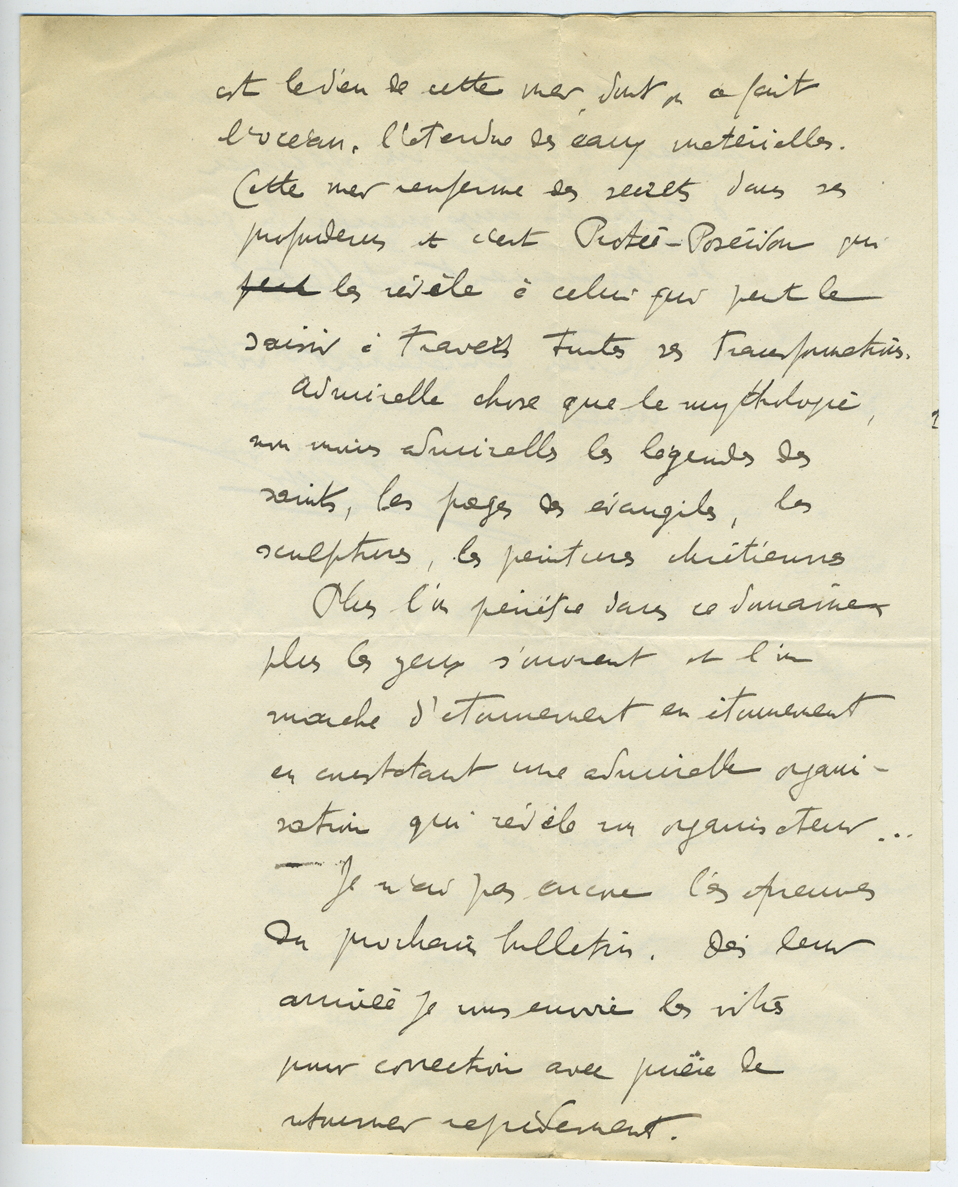 est le dieu de cette mer dont on a fait
l'océan, l'étendue des eaux matérielles.
Cette mer renferme des secrets dans ses
profondeurs et c'est Protée-Poséidon qui
peut les révèle à celui qui peut le
saisir à travers toutes ses transformations.
Admirable chose que la mythologie,
non moins admirables les légendes des
saints, les pages des évangiles, les
sculptures, les peintures chrétiennes
Plus l'on pénètre dans ce domaine
plus les yeux s'ouvrent et l'on
marche d'étonnement en étonnement
en constatant une admirable organi-
sation qui révèle un organisateur...
Je n'ai pas encore les épreuves
du prochain bulletin. Dès leur
arrivée je vous envoie les vôtres
pour correction avec prière de
retourner rapidement.